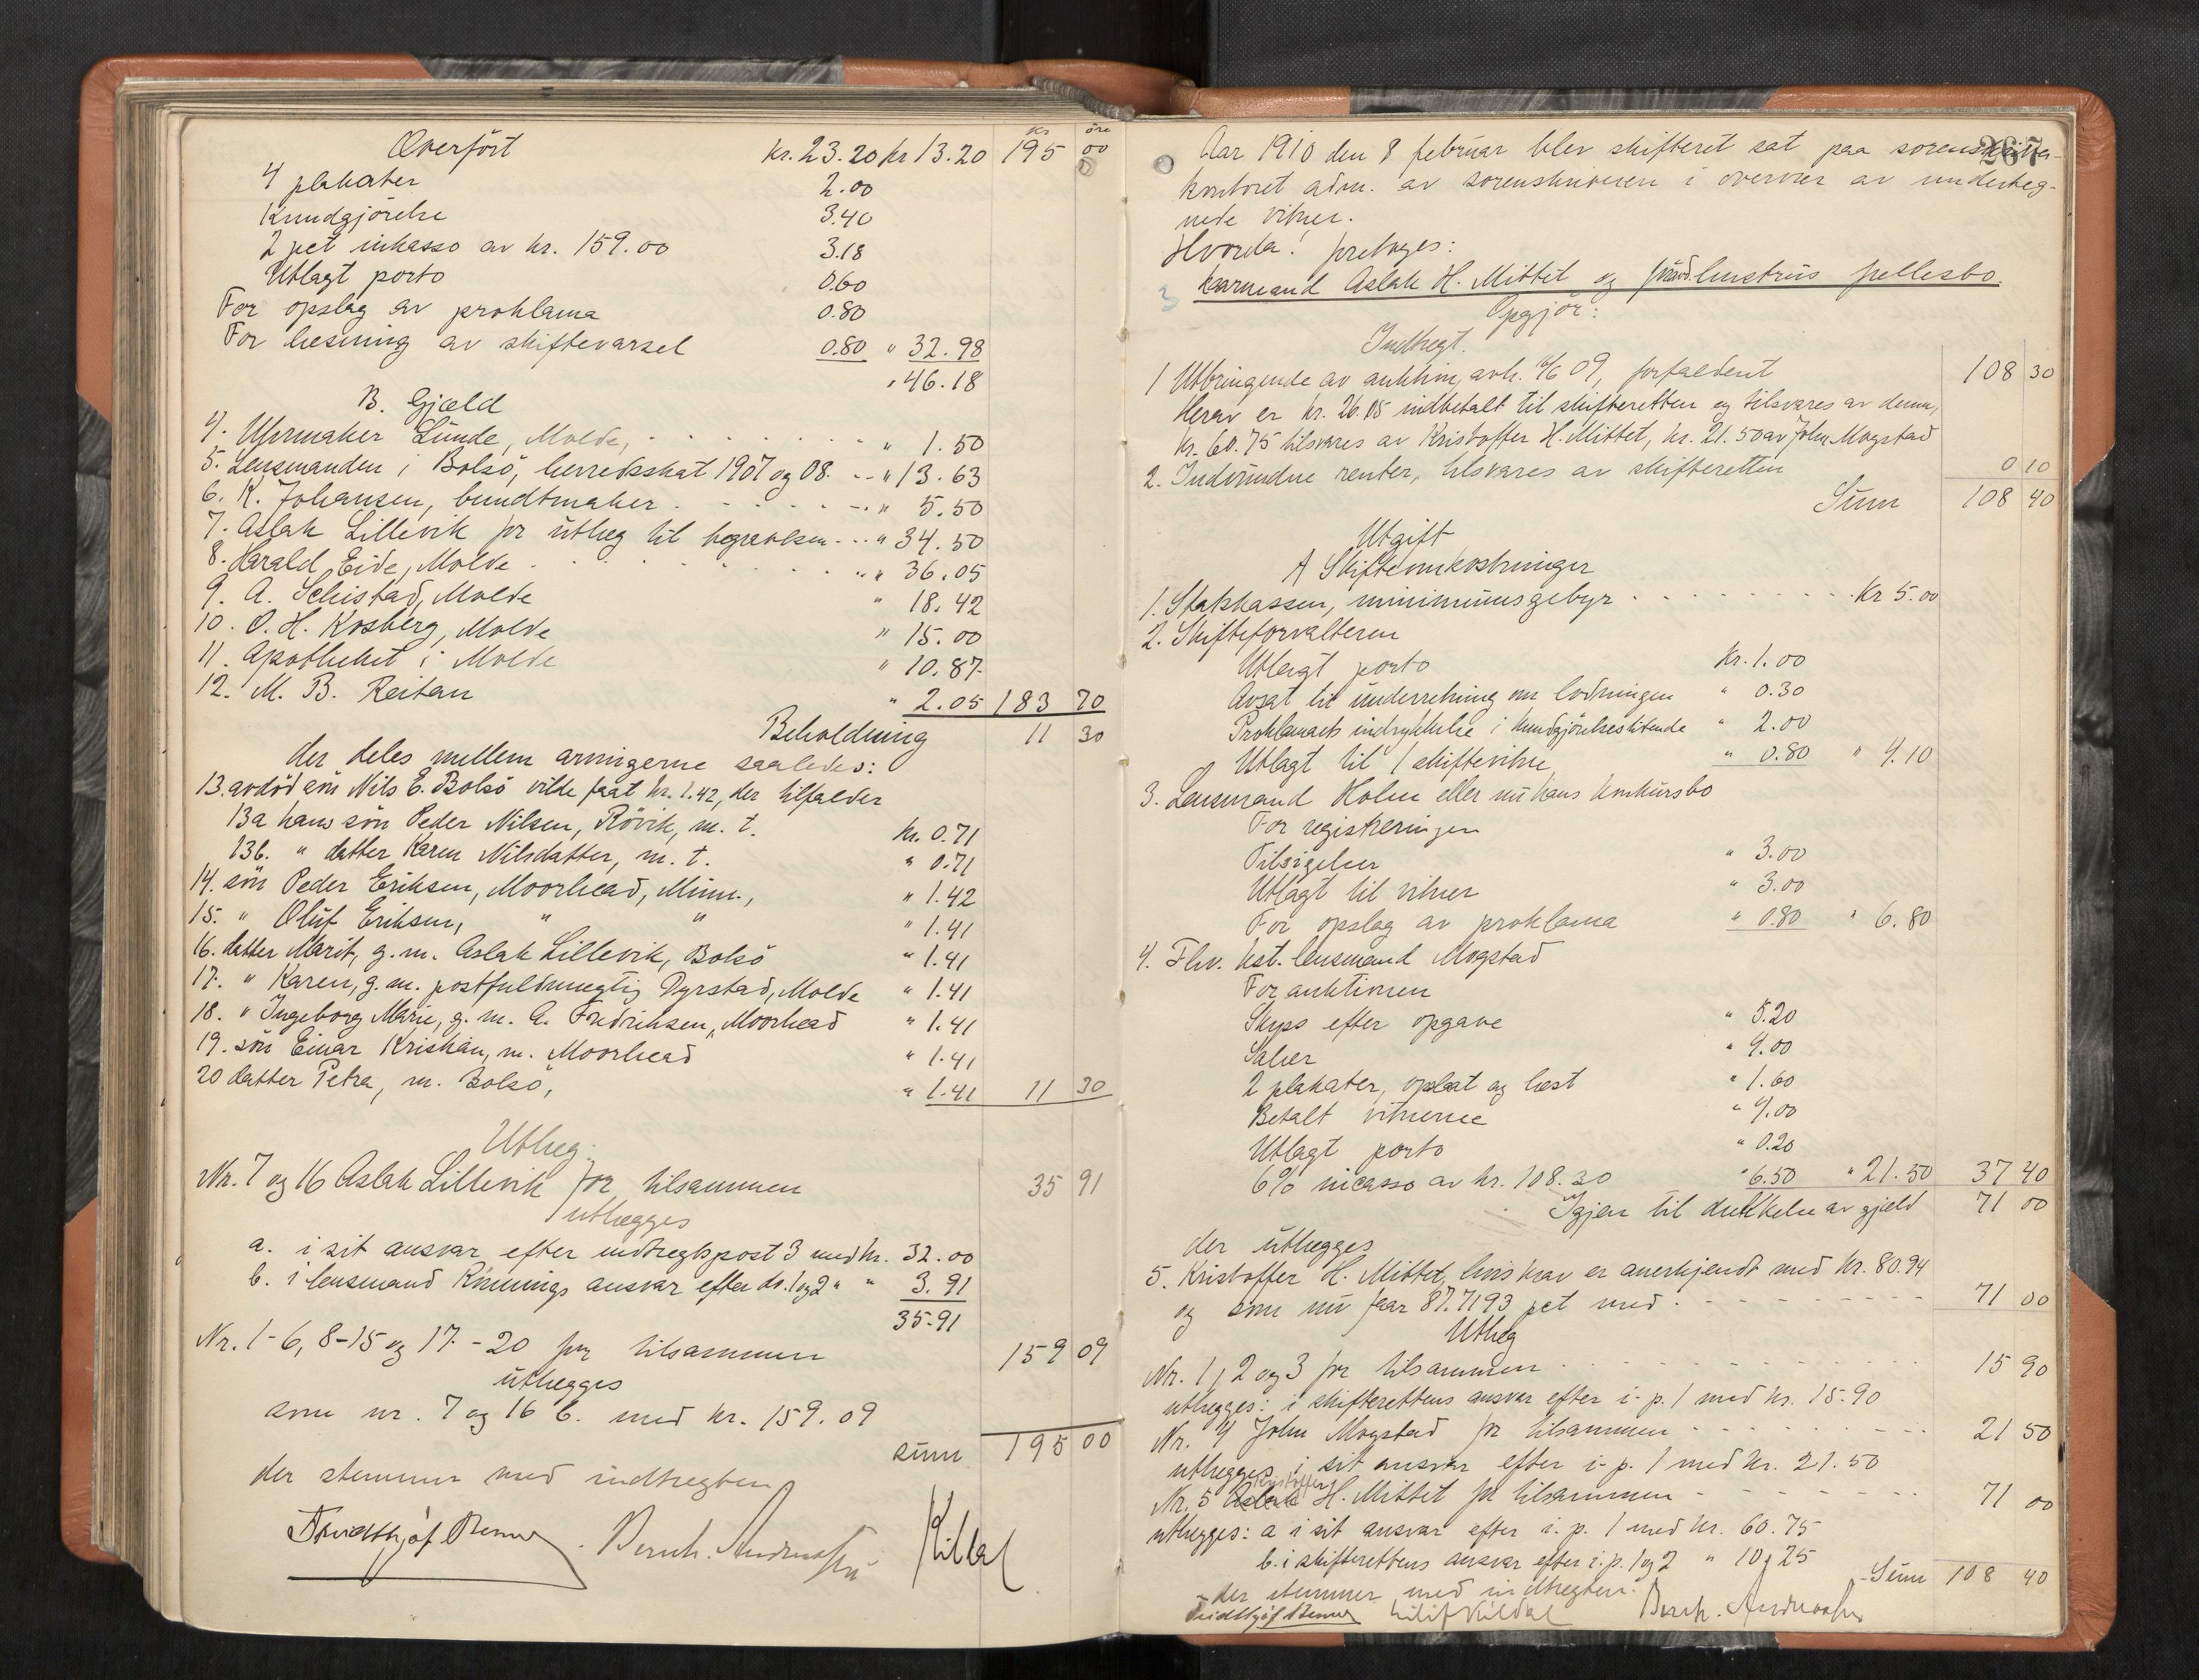 kr øre
Overført kr. 23.20 kr 13.20 195 00
4 plakater 2.00
Kundgjørelse 3.40
2 pct inkasso av kr. 159.00 3.18
Utlagt porto 0.60
For opslag av proklama 0.80
For læsning av skiftevarsel 0.80 " 32.98
" 46.18
B. Gjæld
4. Uhrmaker Lunde, Molde, " 1.50
5. Lensmanden i Bolsø, herredsskat 1907 og 08. " 13.63
6. K. Johansen, bundtmaker " 5.50
7. Aslak Lillevik for utlæg til begravelsen " 34.50
8. Harald Eide, Molde " 36.05
9. A. Schistad, Molde " 18.42
10. O. H. Kosberg, Molde " 15.00
11. Apotheket i Molde " 10.87
12. M. B. Reitan " 2.05 183 70
Beholdning 11 30
der deles mellem arvingerne saaledes:
13. avdød søn Nils E. Bolsø vilde faat kr. 1.42, der tilfalder
13a hans søn Peder Nilsen, Røvik, m. t. kr. 0.71
13b. " datter Karen Nilsdatter, m. t. " 0.71
14. søn Peder Eriksen, Moorhead, Minn., " 1.42
15. " Oluf Eriksen, " " " 1.41
16. datter Marit, g. m. Aslak Lillevik, Bolsø " 1.41
17. " Karen, g. m. postfuldmægtig Dyrstad, Molde " 1.41
18. " Ingeborg Marie, g. m. A. Fredriksen, Moorhead " 1.41
19. søn Einar Kristian, m. Moorhead " 1.41
20 datter Petra, m. Bolsø, " 1.41 11 30
Utlæg.
Nr. 7 og 16 Aslak Lillevik for tilsammen 35 91
utlægges
a. i sit ansvar efter indtægtspost 3 med kr. 32.00
b. i lensmand Rønnings ansvar efter do. 1 og 2 " " 3.91
35.91
Nr. 1-6, 8-15 og 17-20 for tilsammen 159 09
utlægges
som nr. 7 og 16 b. med kr. 159.09
sum 195 00
der stemmer med indtægten
Fridthjof Bernh. Kildal
267
Aar 1910 den 8 februar blev skifteret sat paa sorenskriver-
kontoret adm. av sorenskriveren i overvær av underteg-
nede vitner.
Hvorda! foretages:
3 kaarmand Aslak H. Mittet og hustrus fellesbo.
Opgjør:
Indtægt.
1 Utbringende av auktion, avh. 09, forfaldent 108 30
Herav er kr. 26.05 indbetalt til skifteretten og tilsvares av denne,
kr. 60.75 tilsvares av Kristoffer H. Mittet, kr. 21.50 av John Mogstad
2. Indvundne renter, tilsvares av skifteretten 0 10
Sum 108 40
Utgift
A Skifteomkostninger
1. Statskassen, minimumsgebyr kr 5.00
2. Skifteforvalteren
Utlagt porto kr. 1.00
Avsat til underretning om lodningen " 0.30
Proklamaets indrykkelse i kundgjørelsestidende " 2.00
Utlagt til 1 skiftevitne " 0.80 " 4.10
3. Lensmand Holm eller nu hans konkursbo
For registreringen
Tilsigelser " 3.00
Utlagt til vitner " 3.00
For opslag av proklama " 0.80 " 6.80
4. Fhv. kst. lensmand Mogstad
For auktionen
Skyss efter opgave " 5.20
Salær " 4.00
2 plakater, opslat og læst " 1.60
Betalt vitnerne " 4.00
Utlagt porto " 0.20
6% incasso av kr. 108.30 " 6.50 " 21.50 37 40
Igjen til dækkelse av gjeld 71 00
der utlægges
5. Kristoffer H. Mittet, hvis krav er anerkjendt med kr. 80.94
og som nu faar 87.7193 pct med 71 00
Utlæg
Nr. 1, 2 og 3 for tilsammen 15 90
utlægges: i skifterettens ansvar efter i. p. 1 med kr. 15.90
Nr. 4 John Mogstad for tilsammen 21 50
utlægges i sit ansvar efter i. p. 1 med kr. 21.50
Nr. 5 Aslak Kristoffer H. Mittet for tilsammen 71 00
utlægges: a i sit ansvar efter i. p. 1 med kr. 60.75
b. i skifterettens ansvar efter i. p. 1 og 2 " 10,25
Sum 108 40
der stemmer med indtægten.
Fridthjof Kildal Bernh.